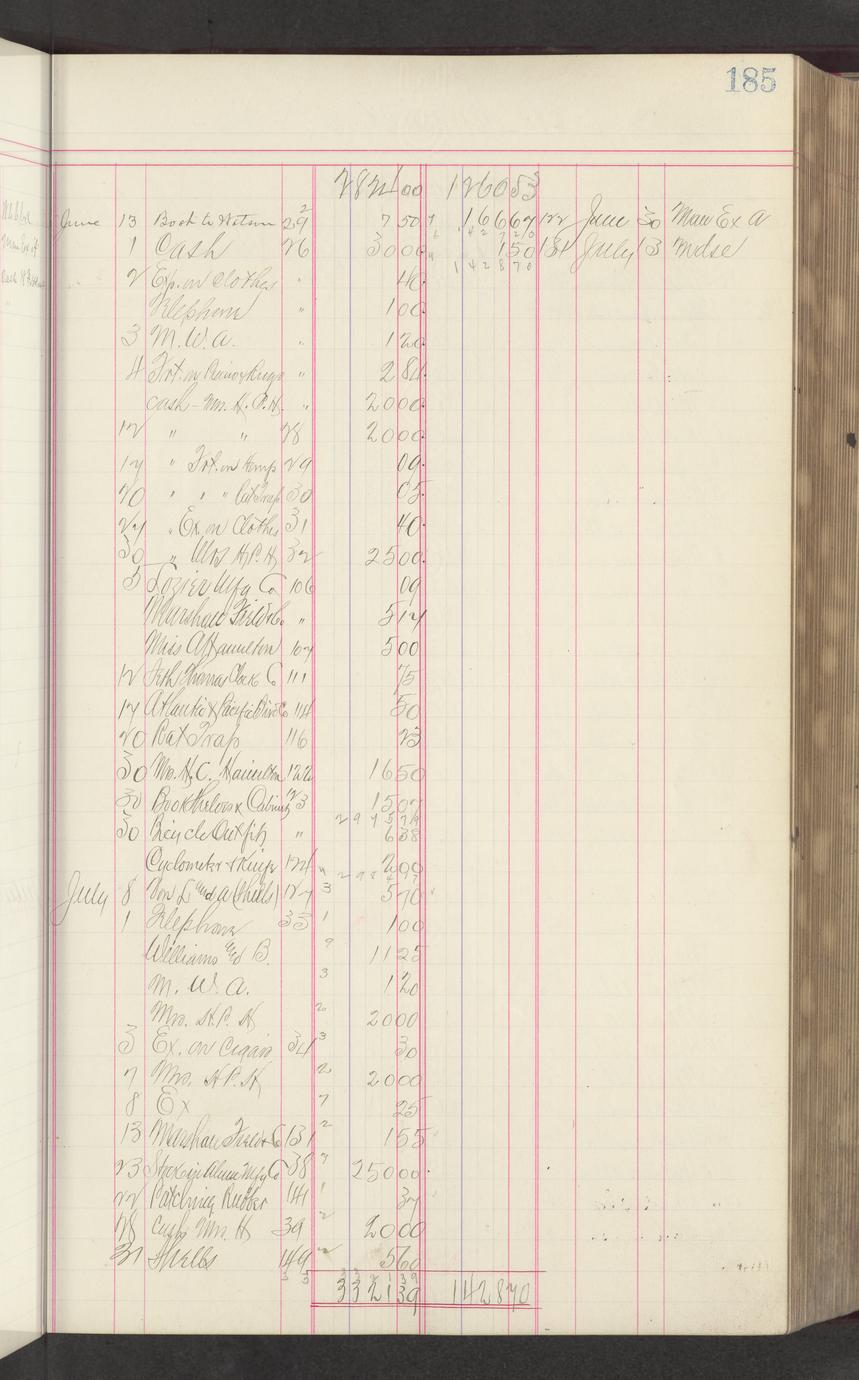 185
2821 00 1260 53
June 13 Book to Watson 29 7 50 166 67 122 June 30 Man Ex A
1 Cash 26 30 00 1 50 131 July 13 Mdse
1428 70
2 Exp. on Clothes " 40
Telephone " 1 00
3 M. W. A. " 1 20
4 Frt. on Rugs " 2 84
Cash - Mrs. H. P. H. " 20 00
12 " " 28 20 00
17 " Frt. on 29 09
20 " " " Rat Trap 30 05
27 " Ex. on Clothes 31 40
30 " Mrs H. P. H. 32 25 00
3 Lozier Mfg Co 106 09
Marshall Field & Co. " 5 17
Miss A Hamilton 107 5 00
12 Seth Thomas Clock Co 111 75
17 Atlantic & Pacific Co 114 50
20 Rat Trap 116 23
30 Mrs. H. C. Hamilton 122 16 50
30 Bookshelves & Cabinet 123 15 07
30 Bicycle Outfits " 6 38
Cyclometer & Knife 124 2 00
July 8 Von L and A (Shells) 127 5 70
1 Telephone 33 1 00
Williams and B. 11 25
M. W. A. 1 20
Mrs. H. P. H 20 00
3 Ex. on Cigars 34 30
7 Mrs. H. P. H. 20 00
8 Ex 25
13 Marshall Field & Co 131 1 55
23 Stock in Alum Mfg Co 38 250 00
22 Patching Rubber 141 37
28 Cash Mrs. H 39 20 00
31 Shells 149 5 60
3321 39 1428 70